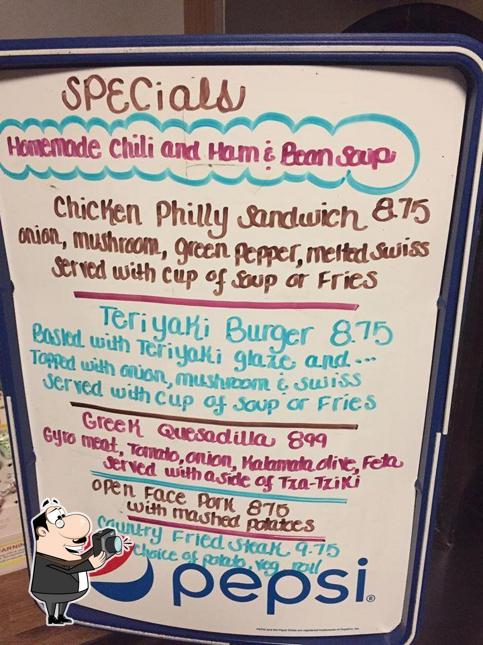 SPECiaLS
Homemade chili and Ham & Bean Soup
Chicken Philly Sandwich 8.75
onion, mushroom, green pepper, melted Swiss
Served with cup of Soup or Fries
Teriyaki Burger 8.75
Basted with Teriyaki glaze and...
Topped with onion, mushroom & Swiss
Served with cup of Soup or Fries
Greek Quesadilla 899
Gyro meat, Tomato, onion, Kalamata olive, Feta
Served with a side of Tza-Tziki
open Face Pork 875
with mashed potatoes
Country Fried Steak 9.75
choice of potato, veg, roll
pepsi